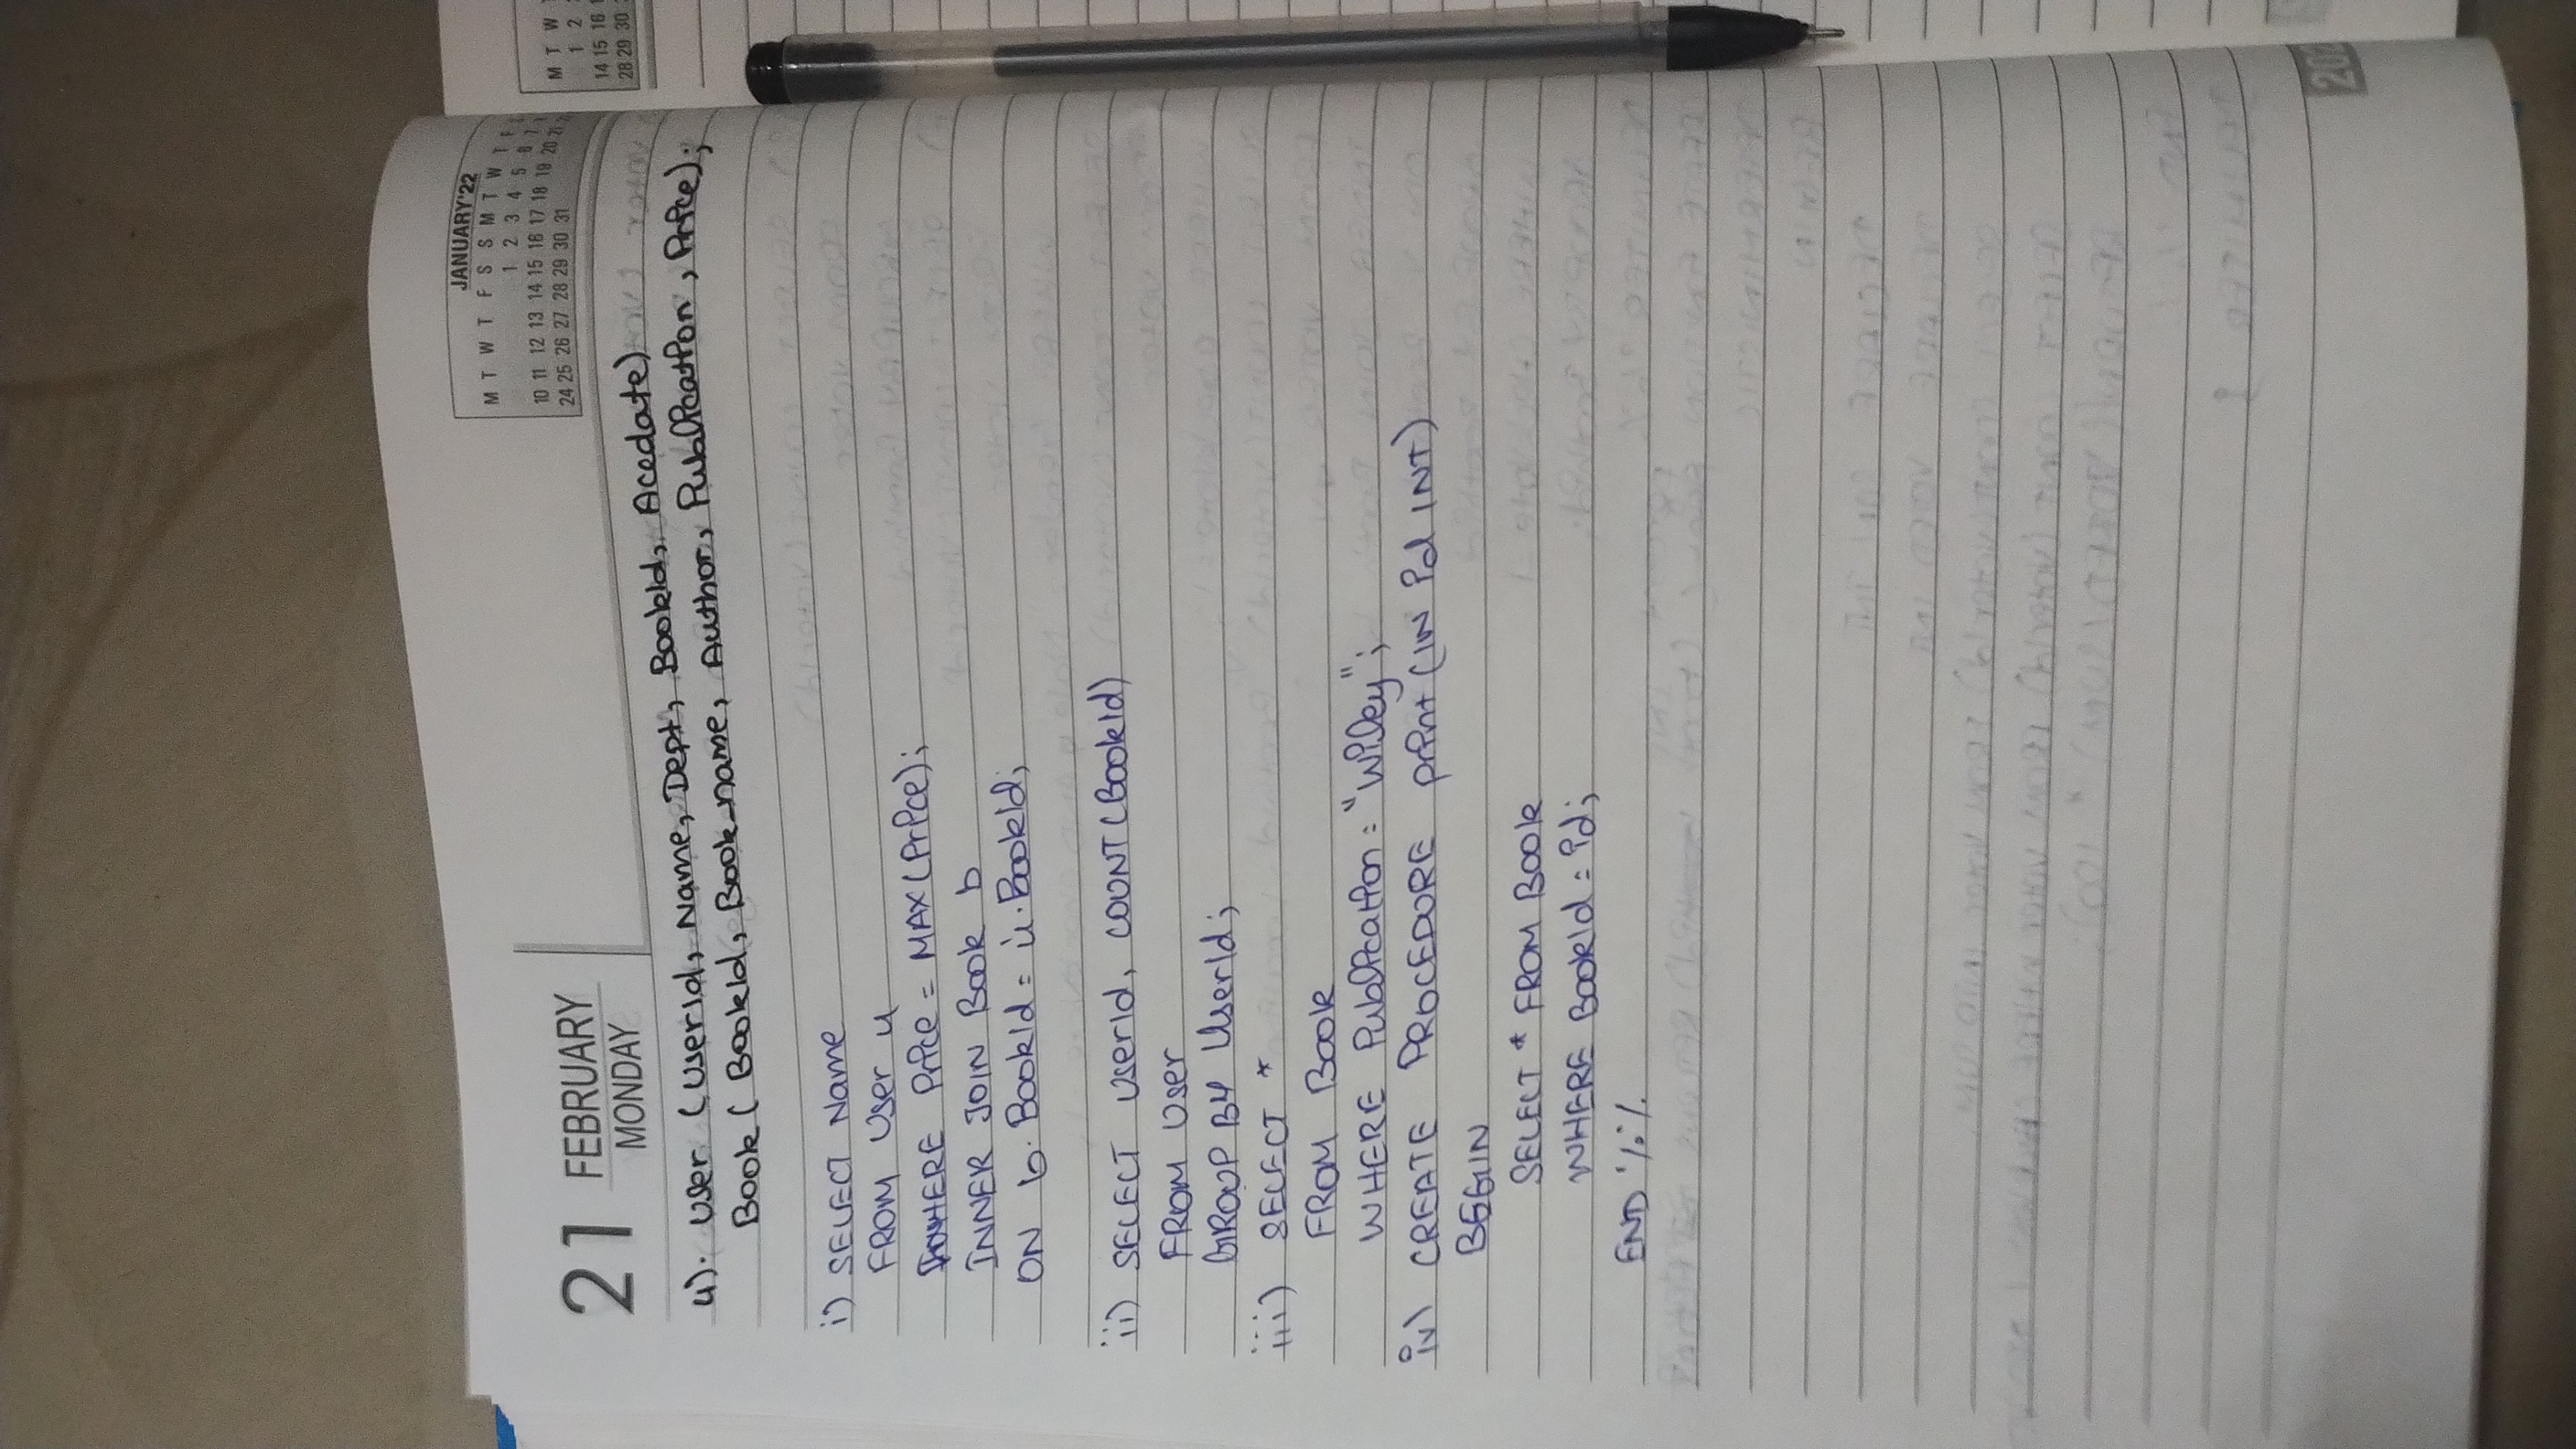 21 FEBRUARY
MONDAY
JANUARY'22
M T W T F S S M T W T F
1 2 3 4 5 6 7
10 11 12 13 14 15 16 17 18 19 20 21
24 25 26 27 28 29 30 31
M T W
1 2
14 15 16
28 29 30
4). User (UserId, Name, Dept, BookId, Accdate)
Book ( BookId, Book_name, Author, Publication, Price);
i) SELECT Name
FROM User u
WHERE Price = MAX(Price);
INNER JOIN Book b
ON b.BookId = u.BookId;
ii) SELECT UserId, COUNT(BookId)
FROM User
GROUP BY UserId;
iii) SELECT *
FROM Book
WHERE Publication = "Wiley";
iv) CREATE PROCEDURE print (IN id INT)
BEGIN
SELECT * FROM Book
WHERE BookId = id;
END %%